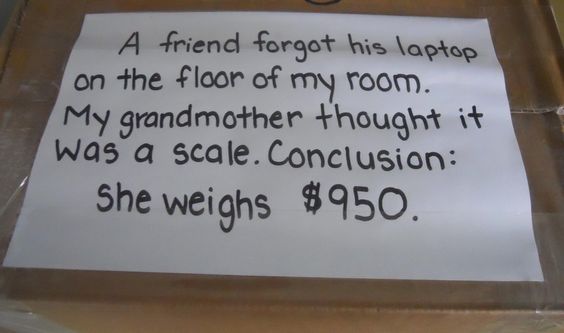 A friend forgot his laptop
on the floor of my room.
My grandmother thought it
was a scale. Conclusion:
she weighs $950.